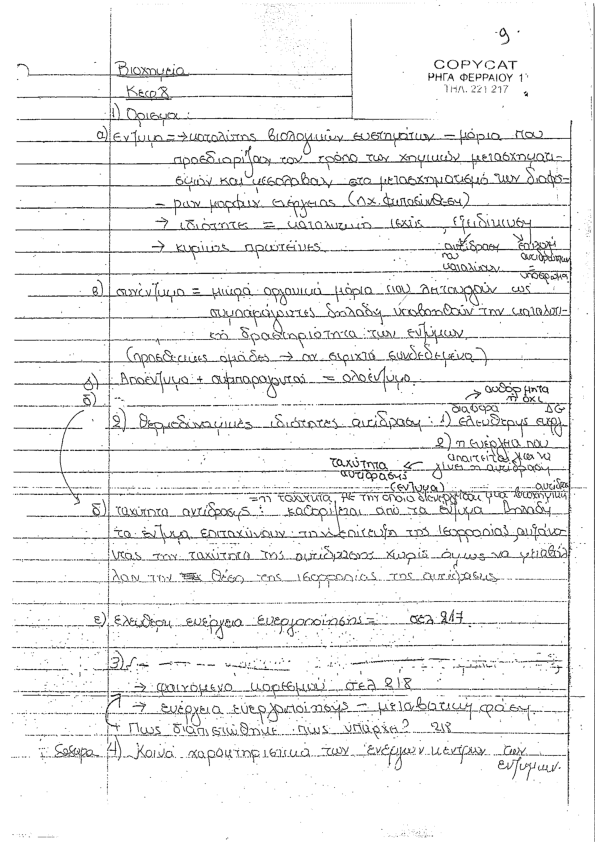 9
COPYCAT
ΡΗΓΑ ΦΕΡΡΑΙΟΥ 1
ΤΗΛ. 221 217
Βιοχημεία
Κεφ 8
1) Ορισμοί:
α) Ένζυμο => καταλύτης βιολογικών συστημάτων – μόρια που
προσδιορίζουν τον τρόπο των χημικών μετασχηματι-
σμών και μεσολαβούν στο μετασχηματισμό των διαφό-
ρων μορφών ενέργειας (πχ. φωτοσύνθεση)
→ ιδιότητες = καταλυτική ισχύς, εξειδίκευση
→ κυρίως πρωτεΐνες
αντίδραση που καταλύουν
επιλογή αντιδρώντων = υπόστρωμα
β) συνένζυμο = μικρά οργανικά μόρια που λειτουργούν ως
συμπαράγοντες δηλαδή υποβοηθούν την καταλυτι-
κή δραστηριότητα των ενζύμων
(προσθετικές ομάδες → αν σφιχτά συνδεδεμένα)
γ) Αποένζυμο + συμπαράγοντας = ολοένζυμο
δ)
→ αυθόρμητα ή όχι
2) Θερμοδυναμικές ιδιότητες αντίδρασης: 1) διαφορά ελεύθερης ενέργ ΔG
2) η ενέργεια που
απαιτείται για να
γίνει η αντίδραση
ταχύτητα αντίδρασης ←
(ένζυμα)
= η ταχύτητα με την οποία διενεργείται μια βιοχημική αντίδρ
δ) ταχύτητα αντίδρασης: καθορίζεται από τα ένζυμα δηλαδή
τα ένζυμα επιταχύνουν την επίτευξη της ισορροπίας αυξάνο-
ντας την ταχύτητα της αντίδρασης χωρίς όμως να μεταβάλ-
λουν την θέση της ισορροπίας της αντίδρασης
ε) Ελεύθερη ενέργεια ενεργοποίησης = σελ 217
3)
→ φαινόμενο κορεσμού σελ 218
→ ενέργεια ενεργοποίησης – μεταβατική φάση
+ Πως διαπιστώθηκε πως υπάρχει? 218
4) Κοινά χαρακτηριστικά των ενεργών κέντρων των
ενζύμων.